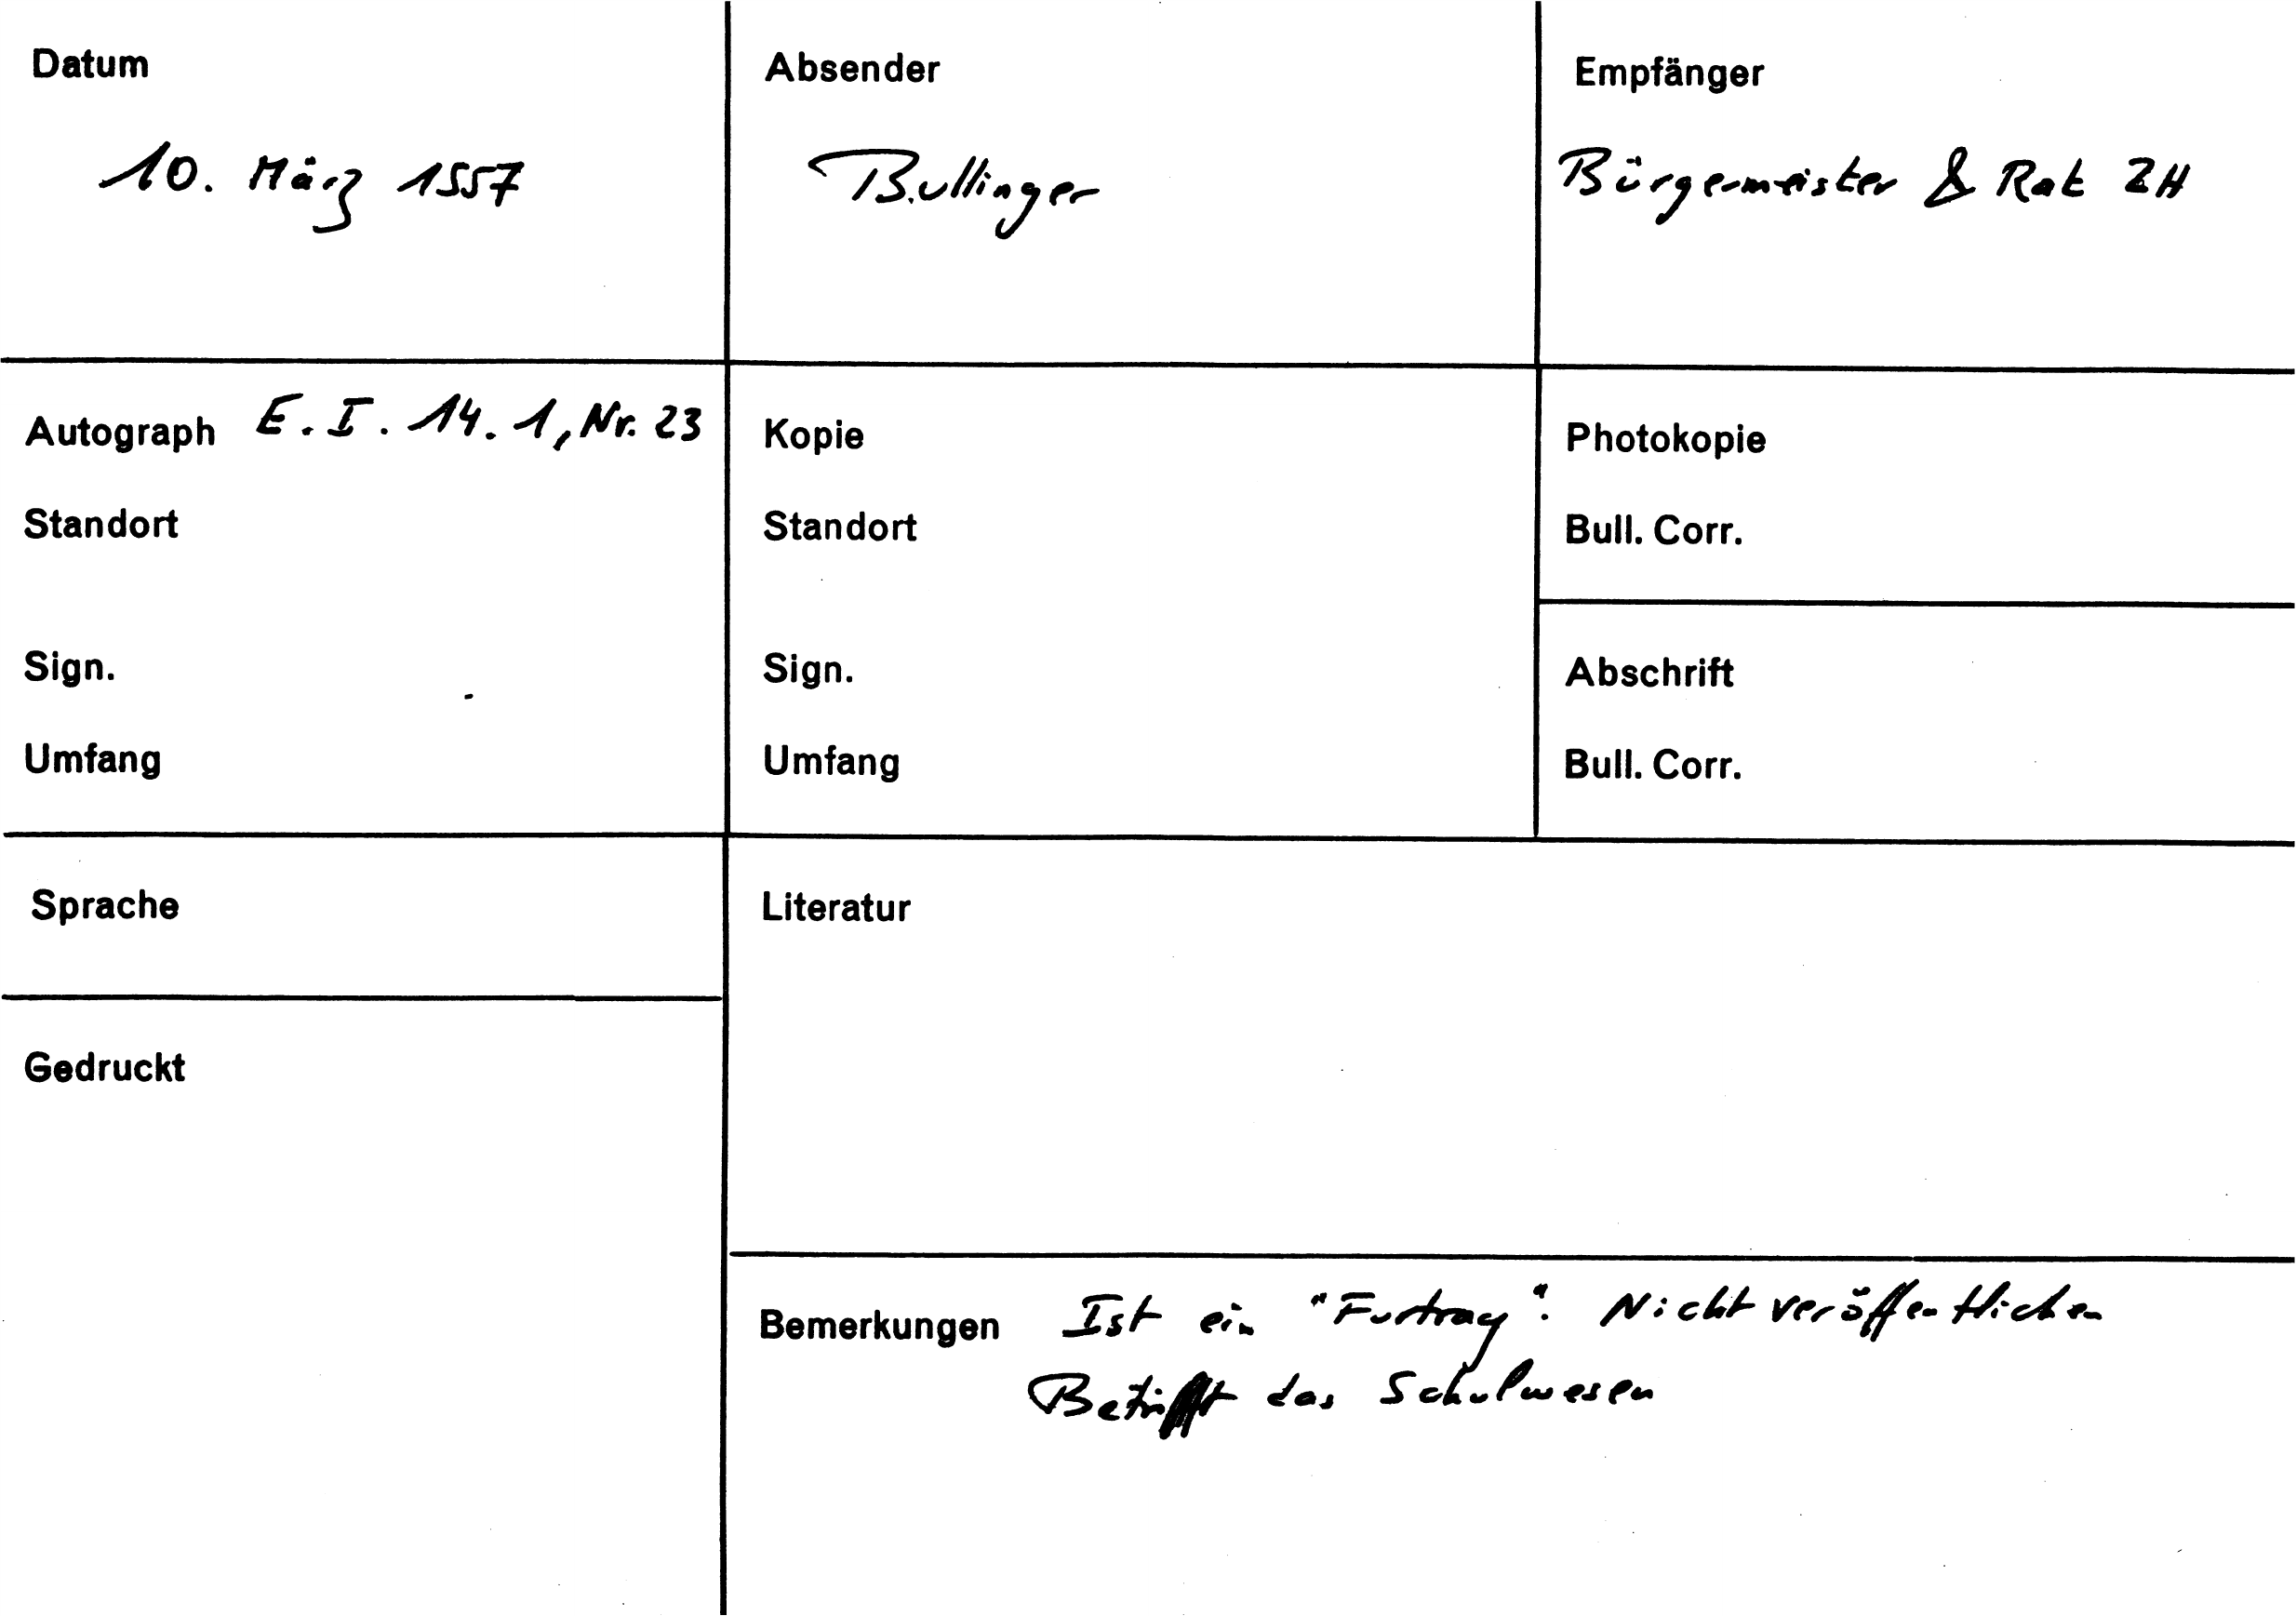 Datum
10. März 1557
Absender
Bullinger
Empfänger
Bürgermeister & Rat ZH
Autograph E. I. 14. 1, Nr. 23
Standort
Sign.
Umfang
Kopie
Standort
Sign.
Umfang
Photokopie
Bull. Corr.
Abschrift
Bull. Corr.
Sprache
Gedruckt
Literatur
Bemerkungen Ist ein "Furtrag". Nicht veröffentlichen
Betrifft das Schulwesen